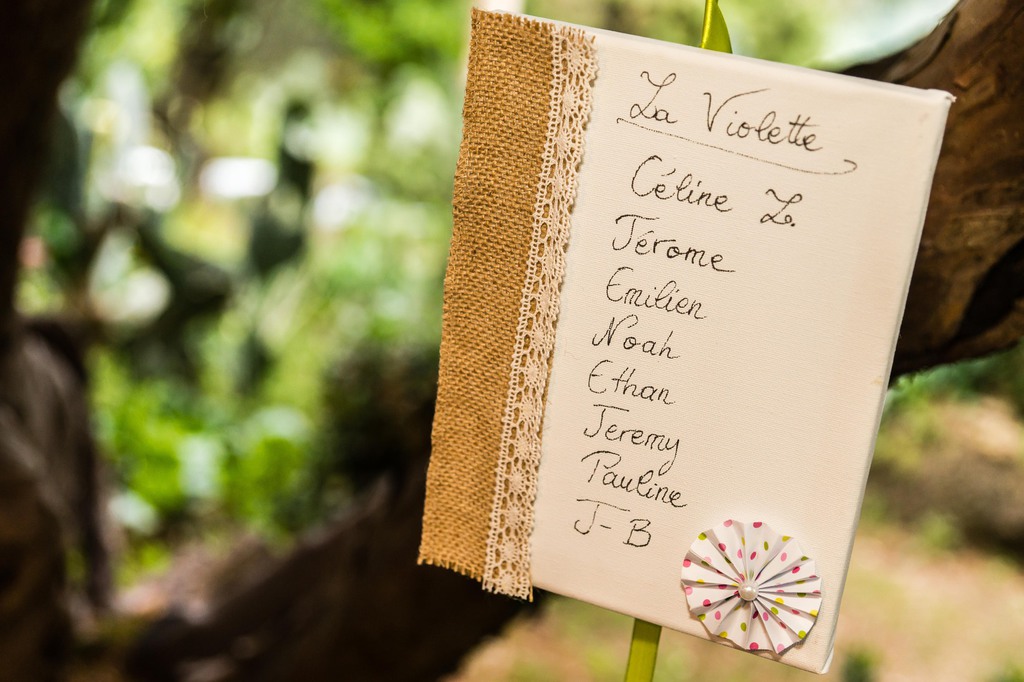 La Violette
Céline Z.
Jérome
Emilien
Noah
Ethan
Jeremy
Pauline
J-B